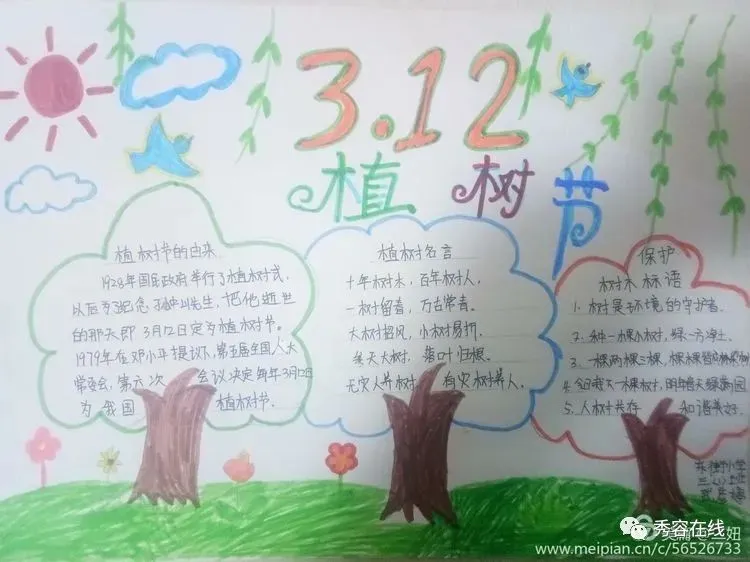 3.12
植树节
植树节的由来
1928年国民政府举行了植树式,
以后为了纪念孙中山先生,把他逝世
的那天即3月12日定为植树节。
1979年在邓小平提议下,第五届全国人大
常委会,第六次会议决定每年3月12日
为我国植树节.
植树名言
十年树木,百年树人,
一树留春,万古常青。
大树招风,小树易折.
参天大树,落叶归根.
无灾人养树,有灾树养人.
保护
树木标语
1.树是环境的守护者.
2.种一棵小树,绿一方净土.
3.一棵两棵三棵,棵棵皆
4.一棵树,明年
5.人树共存和谐美好.
东街小学
三(2)班
秀容在线
www.meipian.cn/c/56526733